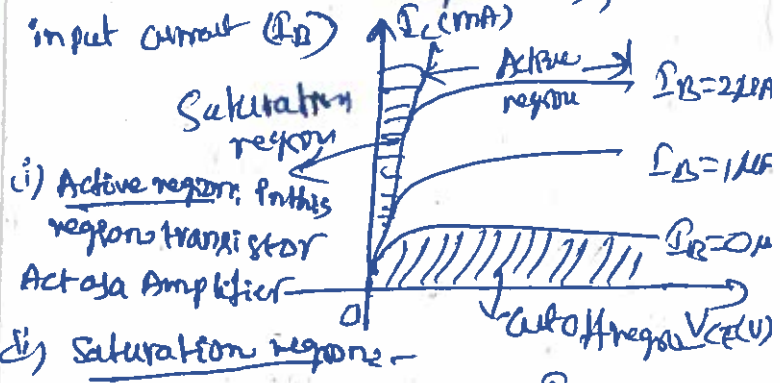 input current (IB)
IC(mA)
Active
region
Saturation
region
IB=2μA
IB=1μA
IB=0μ
(i) Active region: In this
region transistor
Act as a Amplifier
O
cutoff region
VCE(V)
(ii) Saturation region:-